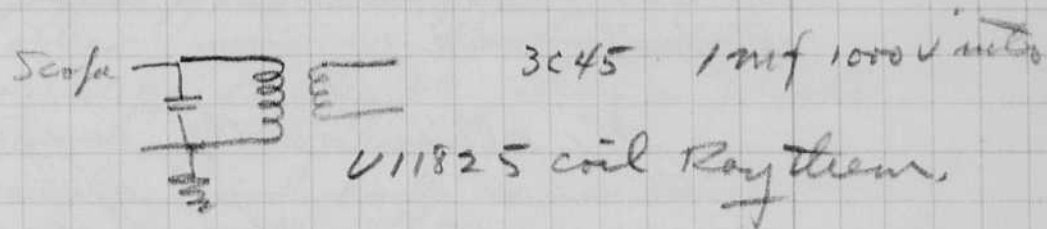 Scope 3C45 1 mf 1000 V into
U11825 coil Raytheon.